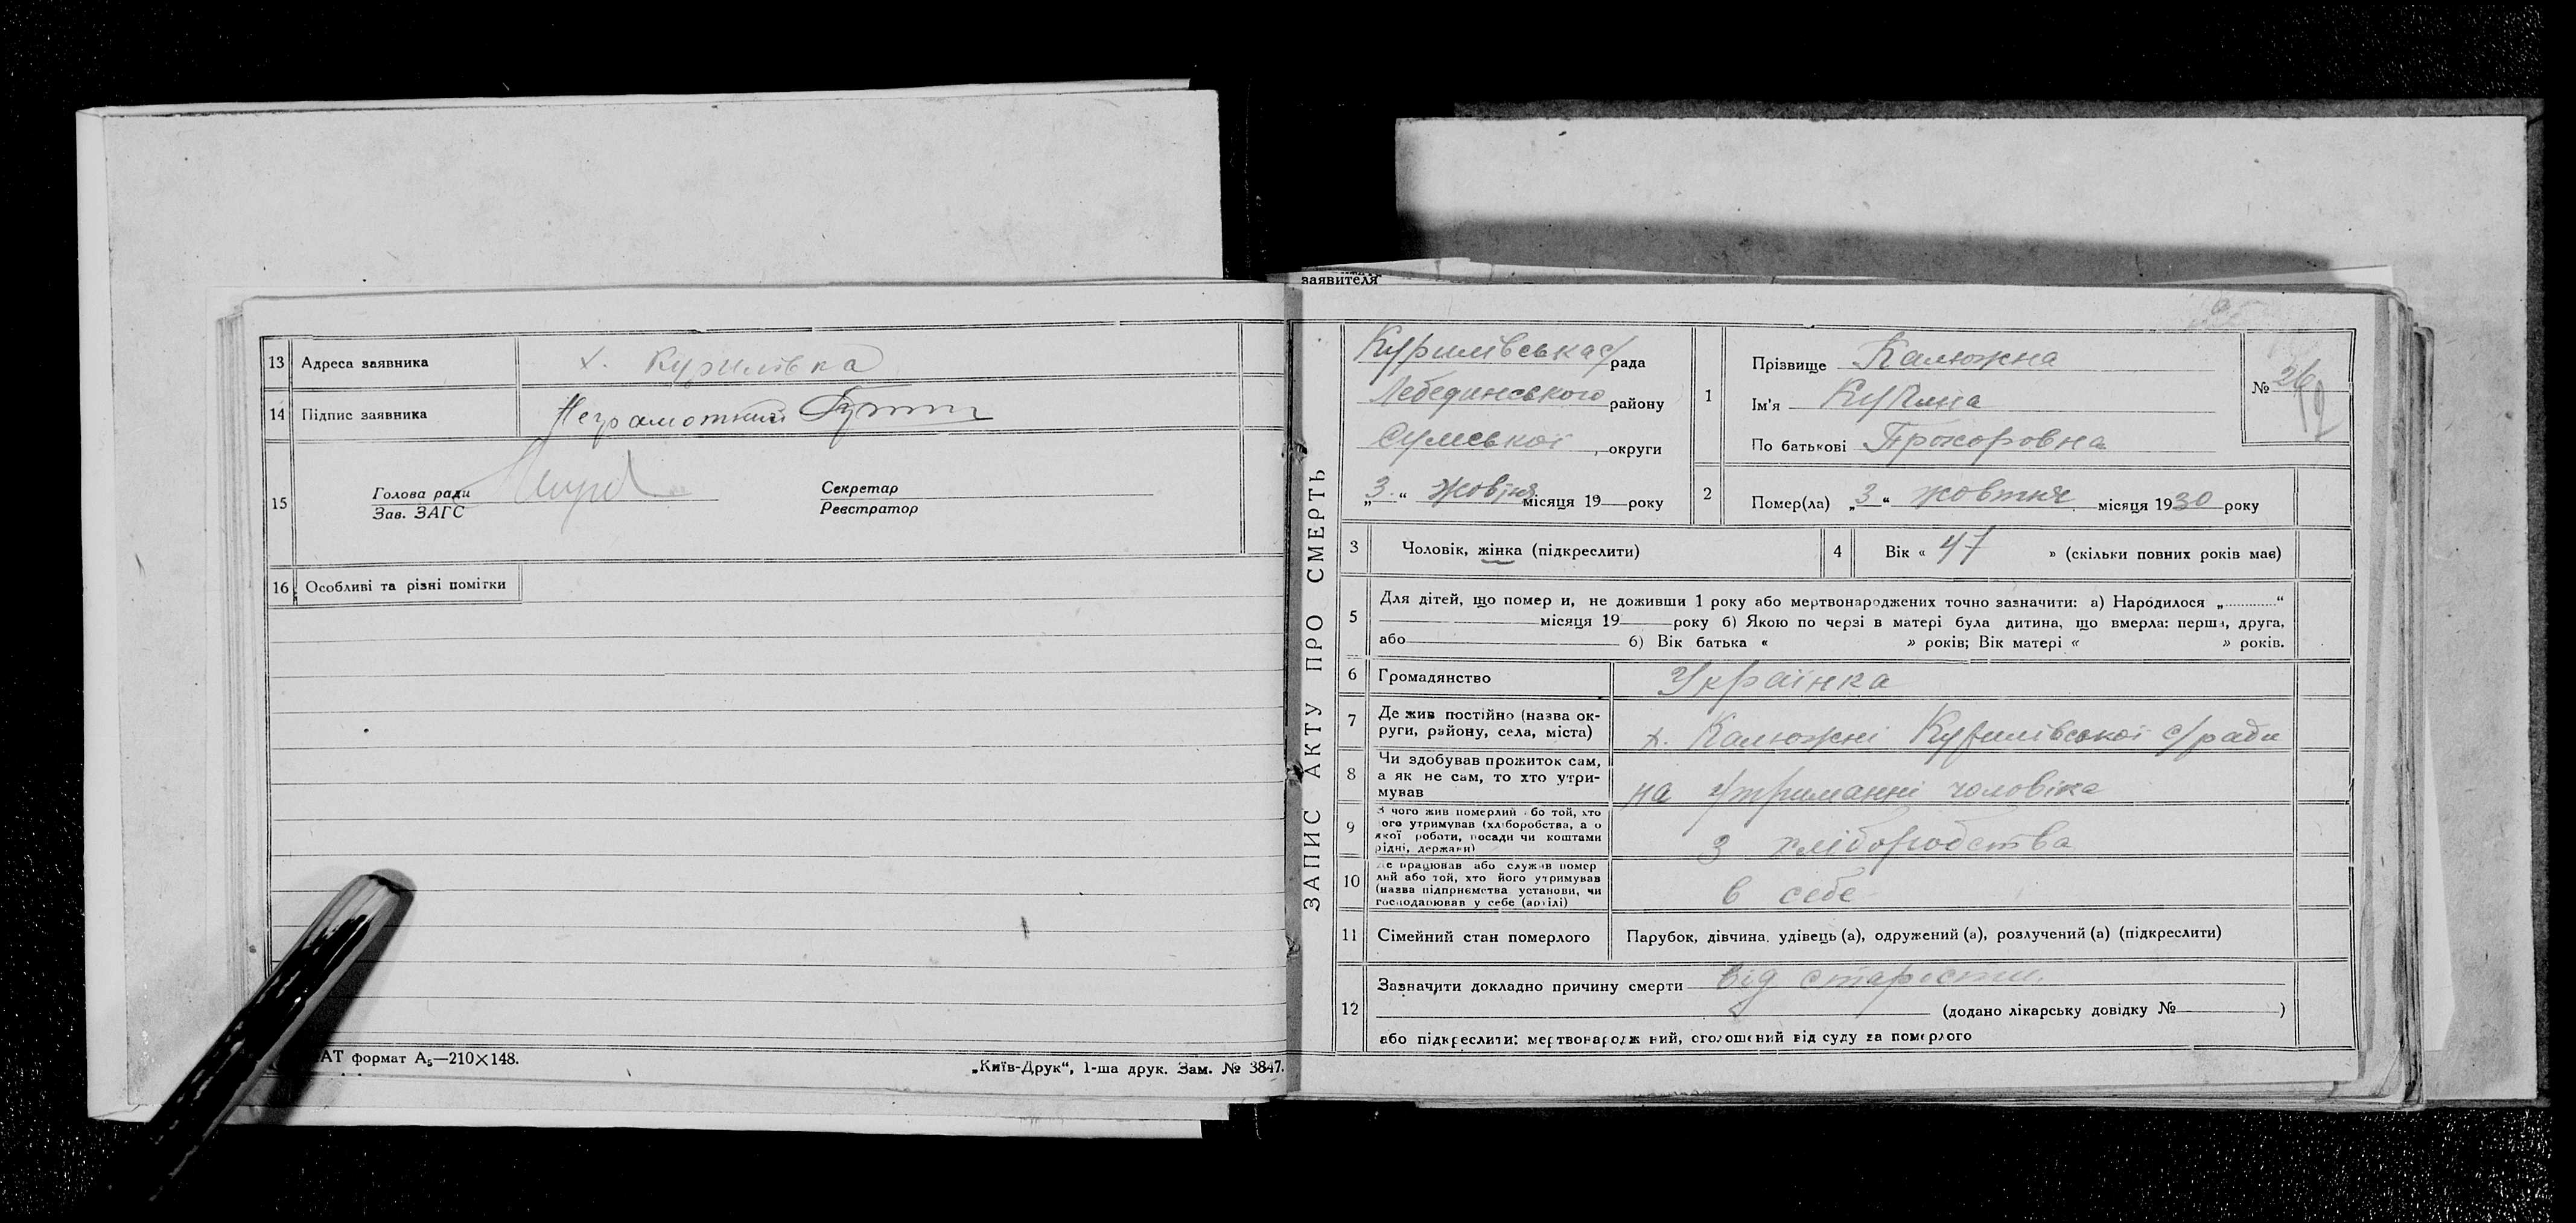 13 Адреса заявника х. Курилівка
14 Підпис заявника Неграмотний
15 Голова ради
Зав. ЗАГС
Секретар
Реєстратор
16 Особливі та різні помітки
АТ формат А5—210×148.
„Київ-Друк“, 1-ша друк. Зам. № 3847.
заявителя
ЗАПИС АКТУ ПРО СМЕРТЬ
Курилівська с/рада
Лебединського району
Сумської округи
„3“ жовтня місяця 19 року
1 Прізвище Калюжна
Ім'я
По батькові Прохоровна
№ 26
2 Помер(ла) „3“ жовтня місяця 1930 року
3 Чоловік, жінка (підкреслити)
4 Вік « 47 » (скільки повних років має)
5 Для дітей, що помер и, не доживши 1 року або мертвонароджених точно зазначити: а) Народилося „............“
місяця 19 року б) Якою по черзі в матері була дитина, що вмерла: перша, друга,
або б) Вік батька « » років; Вік матері « » років.
6 Громадянство Українка
7 Де жив постійно (назва ок-
руги, району, села, міста) х. Калюжні Курилівської с/ради
8 Чи здобував прожиток сам,
а як не сам, то хто утри-
мував на утриманні чоловіка
9 З чого жив померлий або той, хто
його утримував (хліборобства, а о
якої роботи, посади чи коштами
рідні, держави) з хліборобства
10 Де працював або служив помер
лий або той, хто його утримував
(назва підприємства установи, чи
господарював у себе (артілі) в себе
11 Сімейний стан померлого Парубок, дівчина, удівець (а), одружений (а), розлучений (а) (підкреслити)
12 Зазначити докладно причину смерти від старости.
(додано лікарську довідку № )
або підкреслити: мертвонародж ний, оголошений від суду за померлого